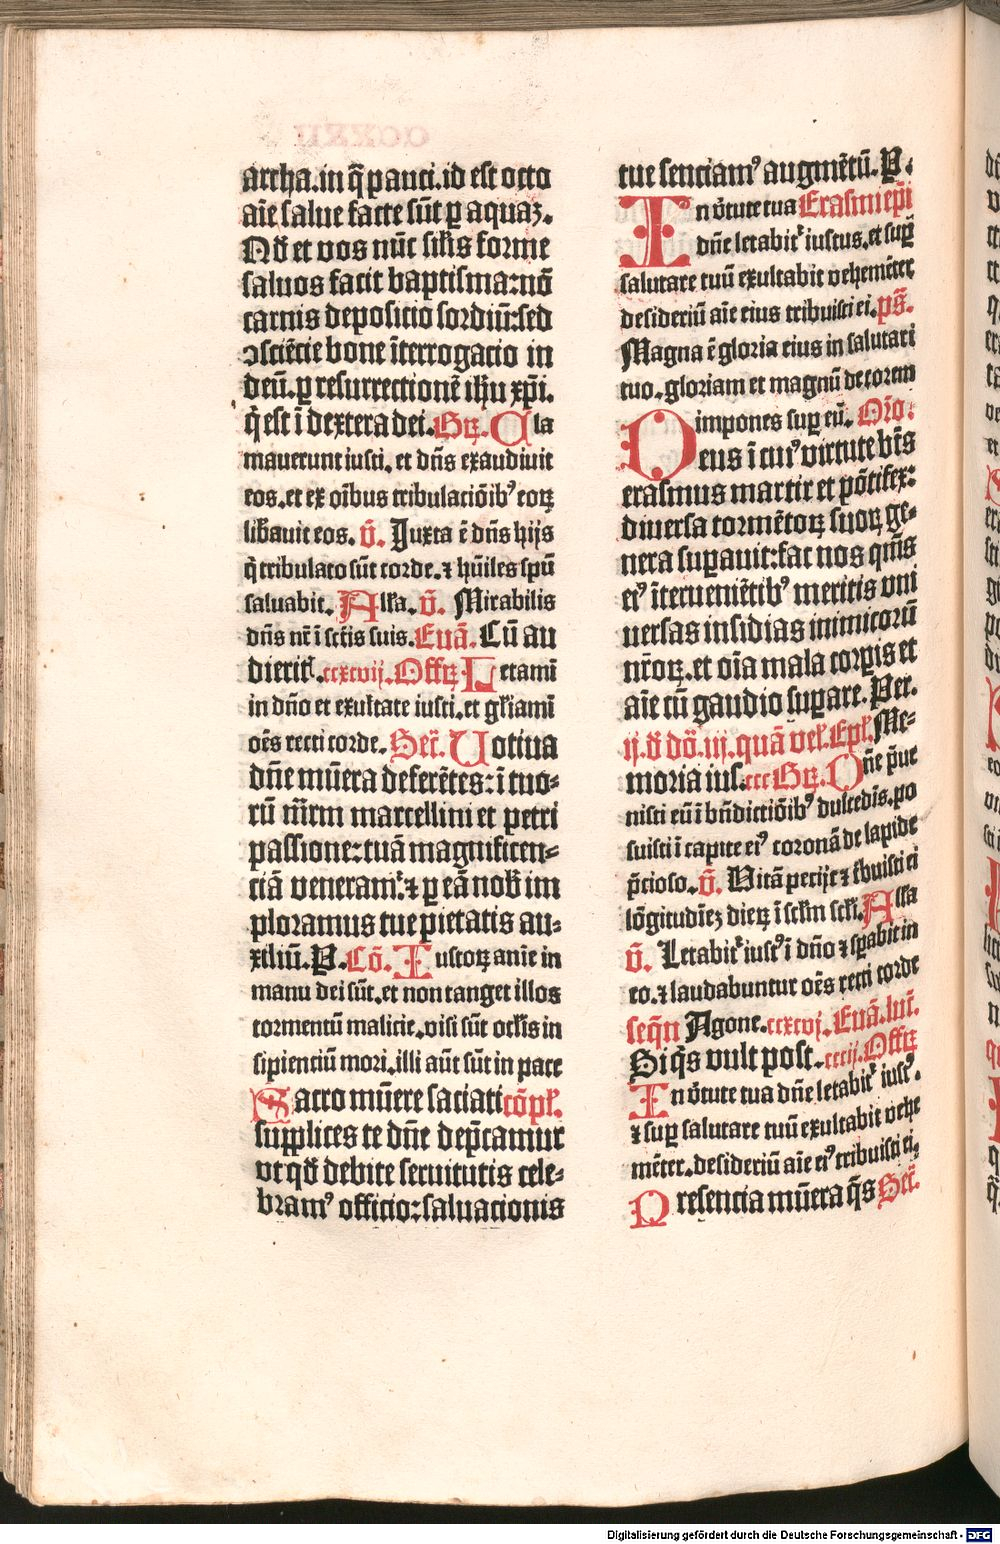 archa.in q̃ pauci.id est octo
aĩe salue facte sũt ꝑ aquaꝫ.
Nõ et vos nũc siĩlis forme
saluos facit baptisma:nõ
carnis depositio sordiũ:sed
ↄsciẽcie bone ĩterrogacio in
deũ.ꝑ resurrectionẽ ihũ xp̃i.
q̃ est ĩ dextera dei. Grꝫ. Cla
mauerunt iusti.et dñs exaudiuit
eos.et ex oĩbus tribulaciõibꝰ eoꝝ
lib̃auit eos. v̄. Juxta ẽ dñs hijs
q̃ tribulato sũt corde.⁊ hũiles spũ
saluabit. Alla. v̄. Mirabilis
dñs nr̃ ĩ scĩs suis. Euã. Cũ au
dieritͥ. ccxcvij. Offꝝ. Letami
in dño et exultate iusti.et gl̃iami
oẽs recti corde. Secr̃. Uotiua
dñe mũera deferẽtes:ĩ tuo-
rũ m̃rm marcellini et petri
passione:tuã magnificen-
ciã veneramᷣ:⁊ ꝑ eã nob̃ im
ploramus tue pietatis au-
xiliũ.P. Cõ. Iustoꝝ anie in
manu dei sũt.et non tanget illos
tormentũ malicie.visi sũt oĩlis in
sipienciũ mori.illi aũt sũt in pace
Sacro mũere saciati cõpl̃.
supplices te dñe dep̃camur
vt qđ debite seruitutis cele-
bramꝰ officio:saluacionis
tue senciamꝰ augmẽtũ.P.
In ṽtute tua Erasmi ep̃i
dñe letabitᷣ iustus.et suꝑ
salutare tuũ exultabit vehemẽter
desideriũ aĩe eius tribuisti ei. ps̃.
Magna ẽ gloria eius in salutari
tuo.gloriam et magnũ decorem
impones suꝑ eũ. Orõ.
Deus ĩ cuiꝰ virtute bt̃s
erasmus martir et põtifex:
diuersa tormẽtoꝝ suoꝝ ge-
nera suꝑauit:fac nos qm̃s
eiꝰ ĩteruenĩetibꝰ meritis vni
uersas insidias inimicorũ
nr̃oꝝ.et oĩa mala corꝑis et
aĩe cũ gaudio suꝑare.Per.
ij.đ dõ.iij.quã vel̃.Epl̃. Me-
moria ius. ccc Grꝫ. Dñe p̃ue
nisti eũ ĩ bñdictiõibꝰ dulcedĩs.po
suisti ĩ capite eiꝰ coronã de lapide
p̃cioso. v̄. Vitã petijt ⁊ t̃buisti ei
lõgitudĩeꝫ dieꝝ ĩ sclm̃ scl̃i. Alla
v̄. Letabitᷣ iustꝰ ĩ dño ⁊ sꝑabit in
eo.⁊ laudabuntur oẽs recti corde
seq̃n Agone. ccxcvj. Euã. luc̃.
Si q̃s vult post. cccij. Offꝝ
In ṽtute tua dñe letabitᷣ iustꝰ.
⁊ suꝑ salutare tuũ exultabit vehe
mẽter.desideriũ aĩe eiꝰ tribuisti ei.
Presencia mũera q̃s Secr̃.
Digitalisierung gefördert durch die Deutsche Forschungsgemeinschaft - DFG